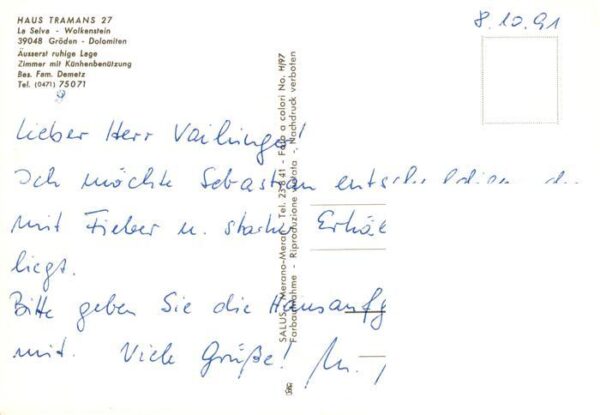 HAUS TRAMANS 27
La Selva - Wolkenstein
39048 Gröden - Dolomiten
Äusserst ruhige Lage
Zimmer mit Küchenbenützung
Bes. Fam. Demetz
Tel. (0471) 75071
8.10.91
Lieber Herr Vailinge!
Ich möchte Sebastian
mit Fieber u. starker
liegt.
Bitte geben Sie die Hausaufg
mit. Viele Grüße! M.
SALUS, Merano-Meran, Tel. 23 8 41 - Foto a colori No. H/97
Farbaufnahme - Riproduzione vietata - Nachdruck verboten